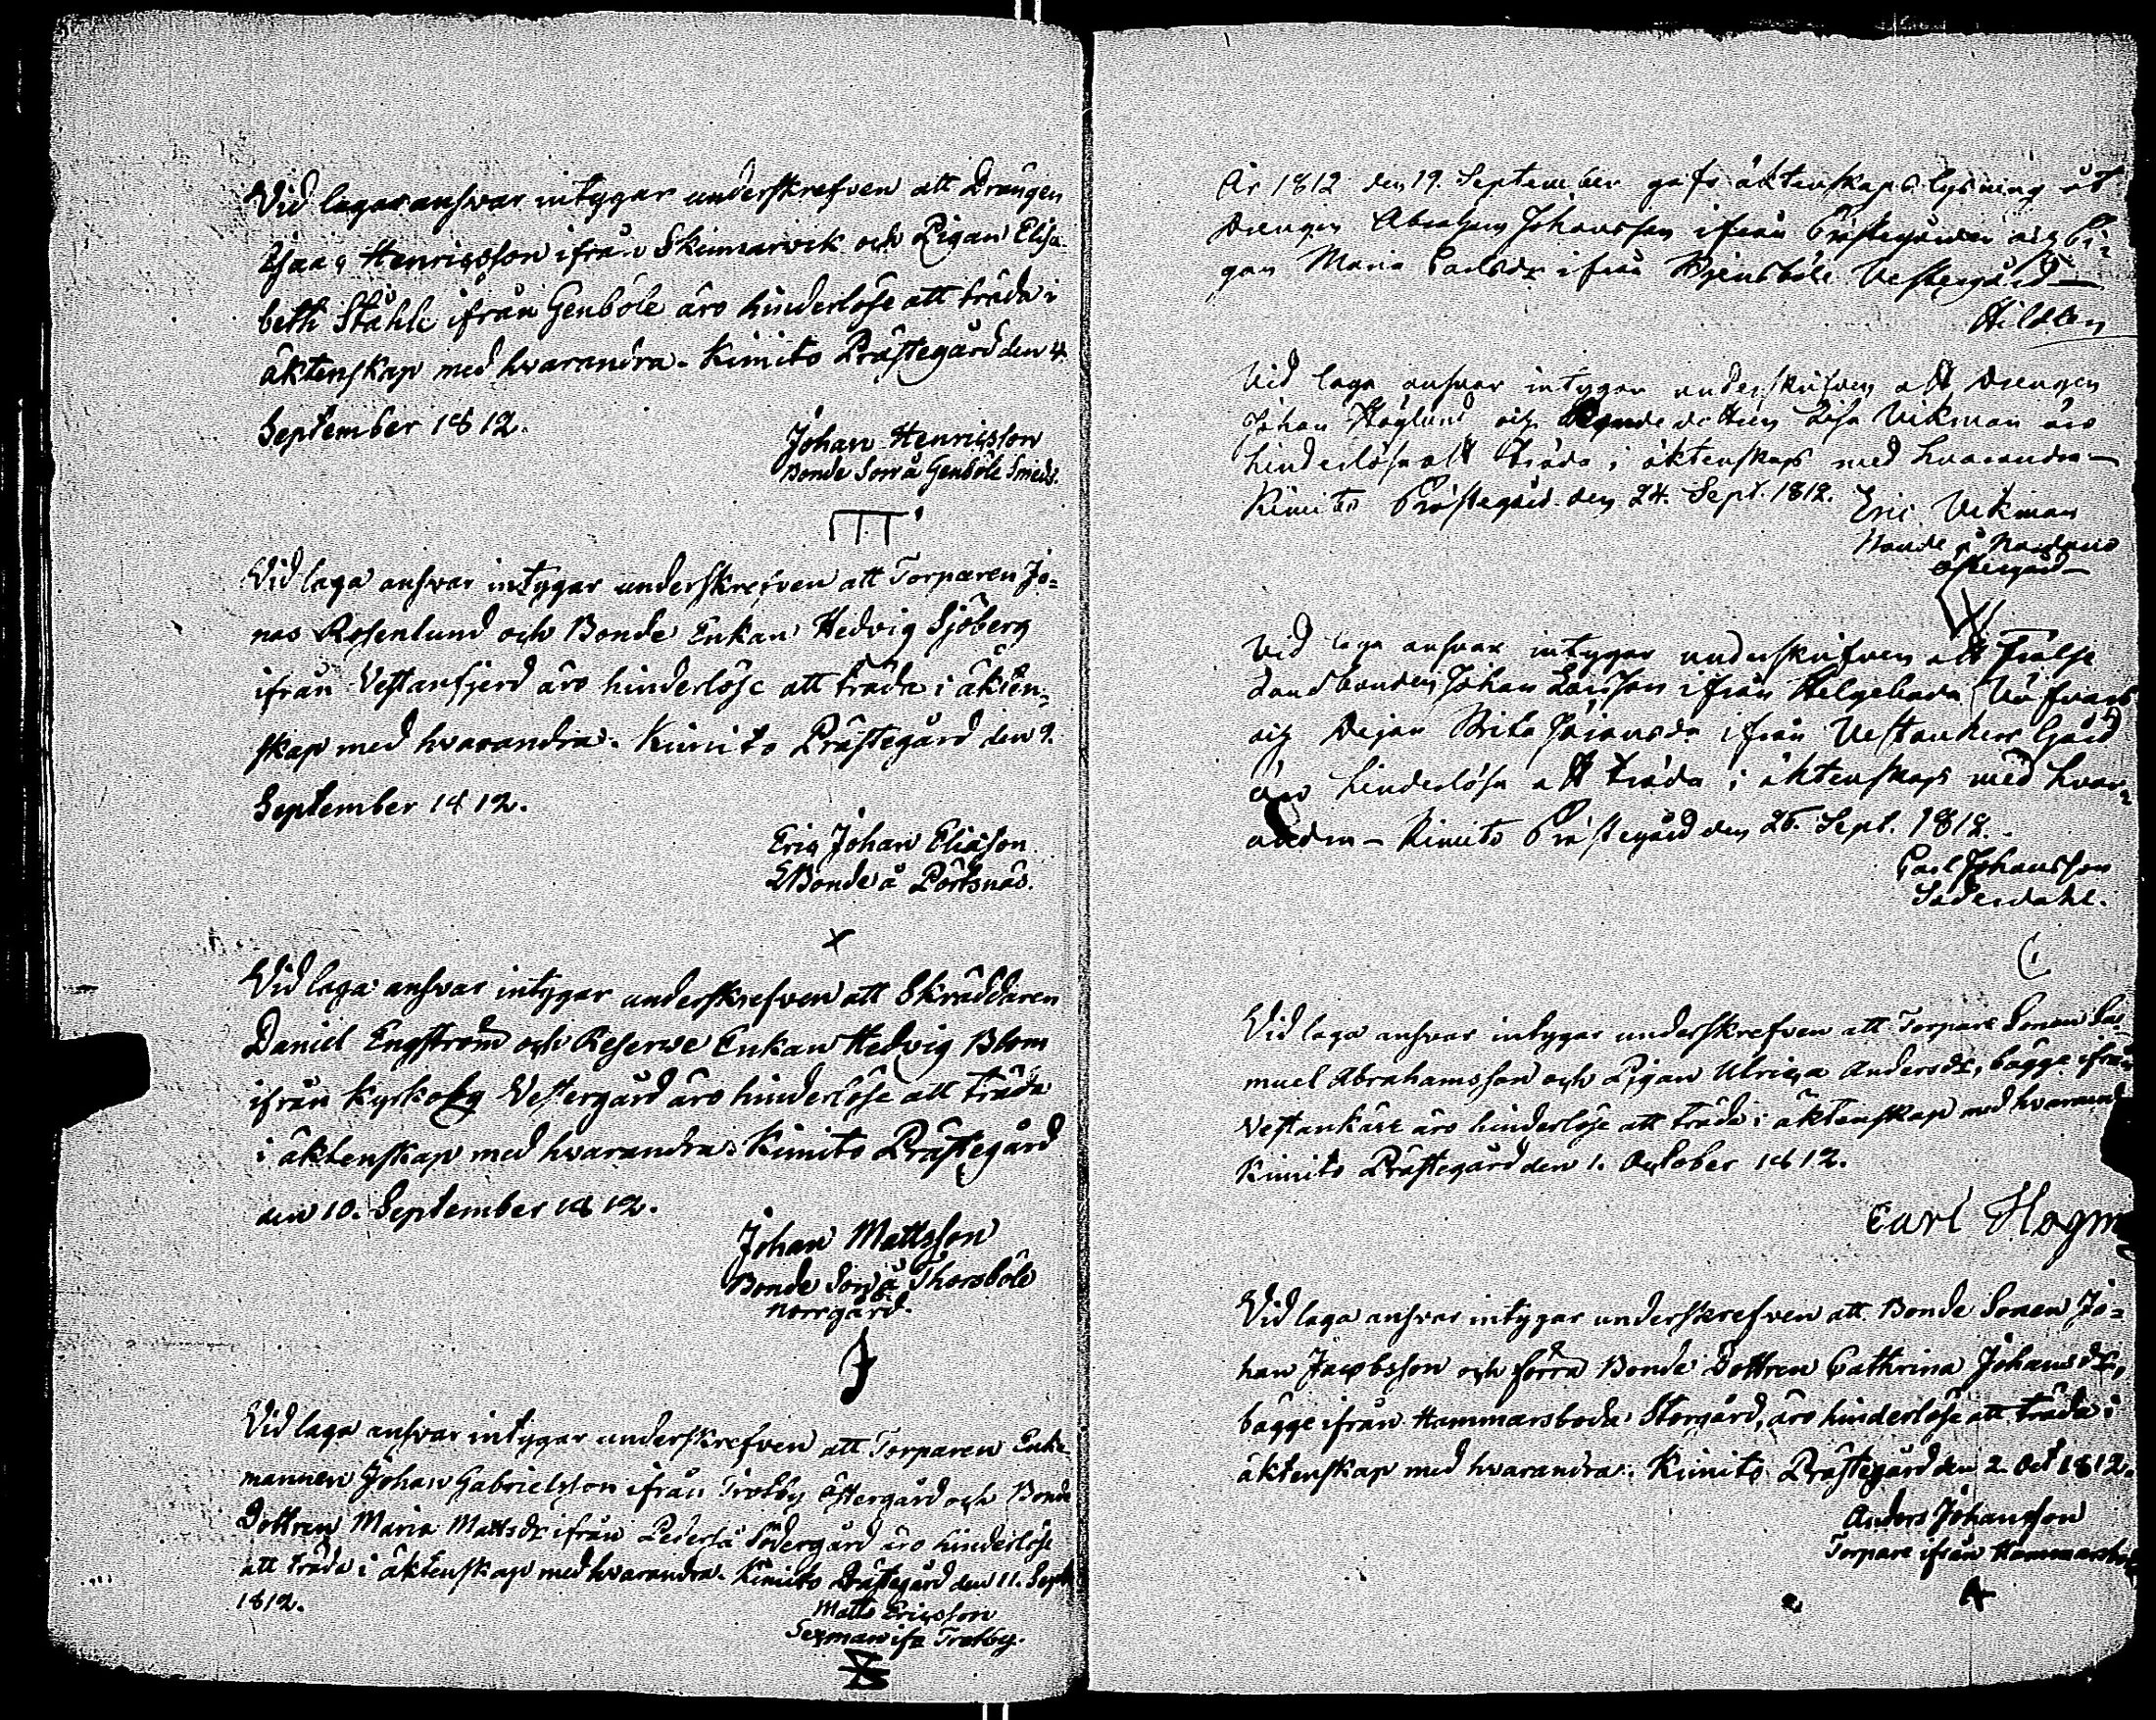 Vid laga ansvar intygar underskrefven att Drängen
Isaac Henricsson ifrån Skinnarvik och Pigan Elisa-
beth Ståhle ifrån Genböle äro hinderlöse att träda i
äktenskap med hvarandra. Kimito Prästegård den 4.
September 1812.
Johan Henricsson
Bonde Son å Genböle Smeds.
Vid laga ansvar intygar underskrefven att Torparen Jo=
nas Rosenlund och Bonde Enkan Hedvig Sjöberg
ifrån Vestanfjerd äro hinderlöse att träda i äkten=
skap med hvarandra. Kimito Prästegård den 9.
September 1812.
Eric Johan Eliæson
Bonde å Pörtsnäs.
Vid laga ansvar intygar underskrefven att Skräddaren
Daniel Engström och Reserve Enkan Hedvig Blom
ifrån Kyrkoby Vestergård äro hinderlöse att träda
i äktenskap med hvarandra. Kimito Prästegård
den 10. September 1812.
Johan Mattsson
Bonde Son å Thorsböle
Norrgård.
Vid laga ansvar intygar underskrefven att Torparen Enke-
mannen Johan Gabrielsson ifrån Trotby Östergård och Bonde
Dottren Maria Mattsdr ifrån Pederså Södergård äro hinderlöse
att träda i äktenskap med hvarandra. Kimito Prästegård den 11. Sept.
1812.
Matts Ericsson
Sexman ifr. Trotby.
År 1812 den 19. September gafs äktenskaps lysning åt
Drengen Abraham Johansson ifrån Prästegården och Pi=
gan Maria Carlsdr ifrån Vestergård
Vid laga ansvar intygar underskrifven att Drengen
Johan Höglund och Bonde dottren Lisa Vikman äro
hinderlösa att träda i äktenskap med hvarandra
Kimito Prästegård den 24. Sept. 1812.
Eric Vikman
Bonde å
Östergård
Vid laga ansvar intygar underskrifven att Frälse
Landbonden Johan Larsson ifrån Helgeboda
och Pigan Brita Johansdr ifrån Vestankerr Gård
äro hinderlösa att träda i äktenskap med hvar=
andra - Kimito Prästegård den 26. Sept. 1812.
Carl Johansson
Söderdahl.
Vid laga ansvar intygar underskrefven att Torpare Sonen Sa-
muel Abrahamsson och Pigan Ulrica Andersdr, bägge ifrån
Vestankärr äro hinderlöse att träda i äktenskap med hvarand
Kimito Prästegård den 1. October 1812.
Carl Hagm
Vid laga ansvar intygar underskrefven att Bonde Sonen Jo=
han Jacobsson och förra Bonde Dottren Cathrina Johansdr,
bägge ifrån Hammarsboda Storgård, äro hinderlöse att träda i
äktenskap med hvarandra. Kimito Prästegård den 2. Oct 1812.
Anders Johansson
Torpare ifrån Hammarsboda